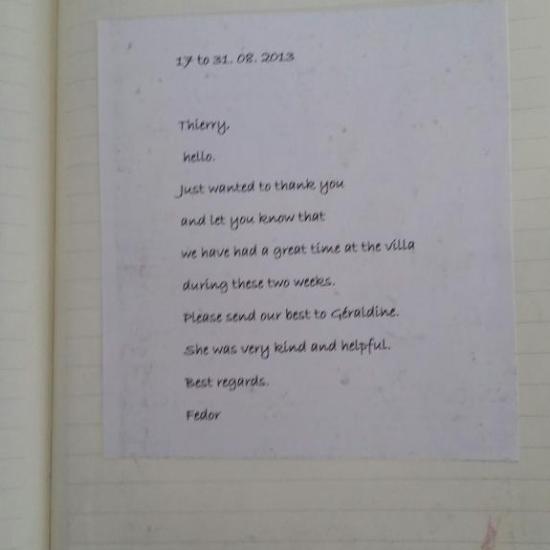 17 to 31. 08. 2013
Thierry,
hello.
Just wanted to thank you
and let you know that
we have had a great time at the villa
during these two weeks.
Please send our best to Géraldine.
She was very kind and helpful.
Best regards.
Fedor